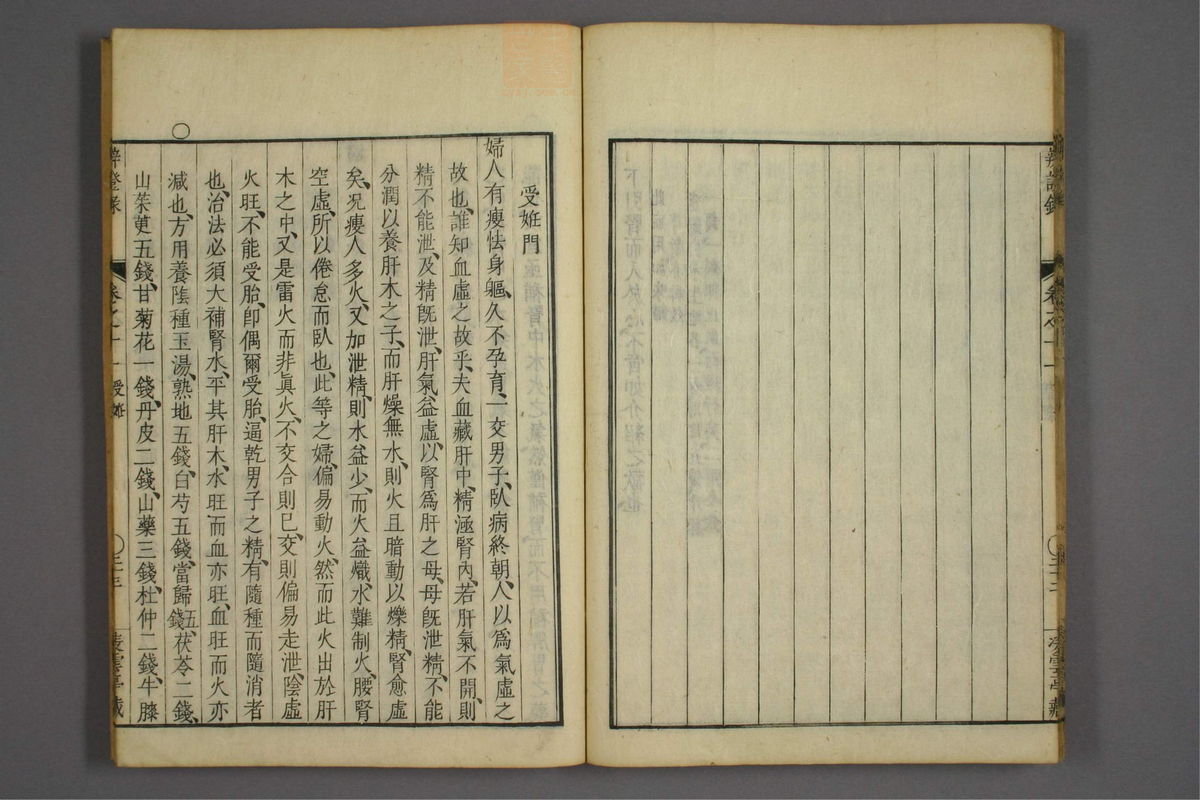 受姙門
婦人有瘦怯身軀、久不孕育、一交男子、卧病終朝、人以爲氣虛之
故也、誰知血虛之故乎、夫血藏肝中、精涵腎內、若肝氣不開、則
精不能泄、及精既泄、肝氣益虛、以腎爲肝之母、母既泄精、不能
分潤以養肝木之子、而肝燥無水、則火且暗動以爍精、腎愈虛
矣、况瘦人多火、又加泄精、則水益少、而火益熾、水難制火、腰腎
空虛、所以倦怠而卧也、此等之婦、偏易動火、然而此火出於肝
木之中、又是雷火而非眞火、不交合則已、交則偏易走泄、陰虛
火旺、不能受胎、卽偶爾受胎、逼乾男子之精、有隨種而隨消者
也、治法必須大補腎水、平其肝木、水旺而血亦旺、血旺而火亦
減也、方用養陰種玉湯、熟地五錢、白芍五錢、當歸五錢、茯苓二錢、
山茱萸五錢、甘菊花一錢、丹皮二錢、山藥三錢、杜仲二錢、牛膝
卷之十一 受姙